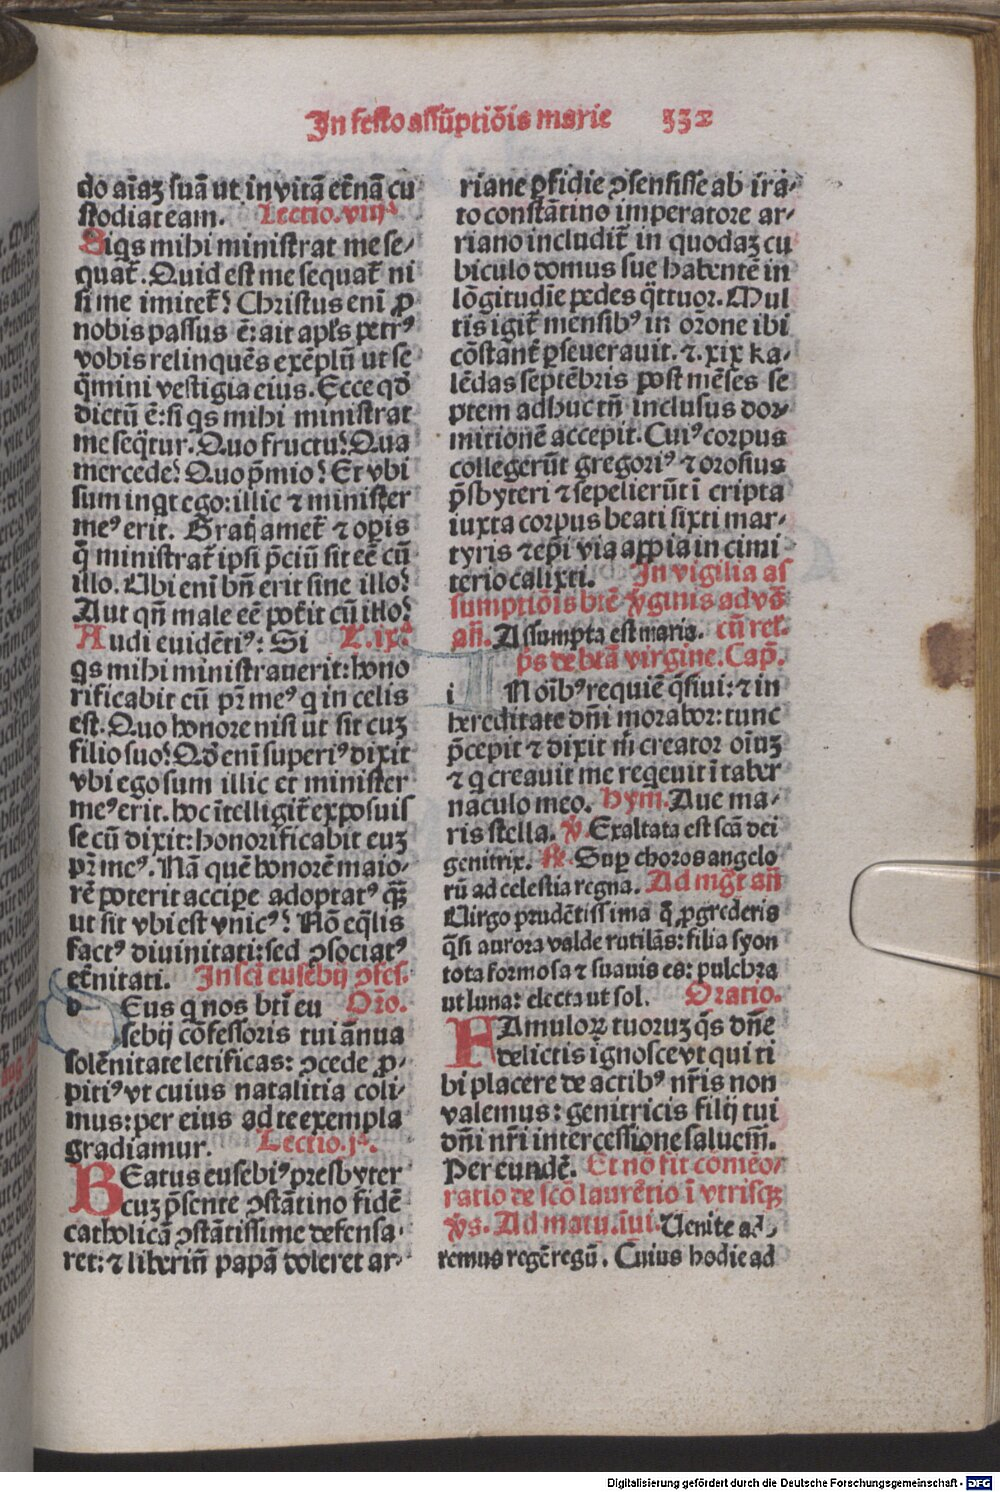 In festo assũptiõis marie 332
do aĩaꝫ suã ut in vitã eẽrnã cu
stodiat eam. Lectio.viijª
Siqs mihi ministrat me se⸗
quat̃. Quid est me sequat̃ ni
si me imitet̃? Christus eni ꝓ
nobis passus ẽ: ait apl̃s petrꝰ
vobis relinquẽs exẽplũ ut se
q̃mini vestigia eius. Ecce qd̃
dictũ ẽ: si qs mihi ministrat
me seq̃tur. Quo fructu? Qua
mercede? Quo p̃mio? Et vbi
sum inqt ego: illic ⁊ minister
meꝰ erit. Gratꝭ amet̃ ⁊ opꝭis
q̃ ministrat̃ ipsi p̃ciũ sit eẽ cũ
illo. Ubi eni bñ erit sine illo?
Aut qñ male eẽ pot̃it cũ illo?
Audi euidẽtiꝰ: Si L.ix.ª
qs mihi ministrauerit: hono
rificabit cũ pr̃ meꝰ q in celis
est. Quo honore nisi ut sit cuꝫ
filio suo? Qd̃ eni superiꝰ dixit
vbi ego sum illic et minister
meꝰ erit. hoc ĩtelligit̃ exposuis
se cũ dixit: honorificabit euꝫ
pr̃ meꝰ. Nã quẽ honorẽ maio⸗
rẽ poterit accipe adoptatꝰ qꝫ̃
ut sit vbi est vnicꝰ? Nõ eq̃lis
factꝰ diuinitati: sed ꝯsociatꝰ
et̃nitati. In sci eusebij ꝯfes.
d Eus q nos bti eu Or̃o.
sebij cõfessoris tui ãnua
solẽnitate letificas: ꝯcede ꝓ⸗
pitiꝰ vt cuius natalitia coli⸗
mus: per eius ad te exempla
gradiamur. Lectio.jª.
BEatus eusebiꝰ presbyter
cuꝫ p̃sente ꝯstãtino fidẽ
catholicã ꝯstãtissime defensa⸗
ret: ⁊ liberiũ papã doleret ar⸗
riane ꝑfidie ꝯsensisse ab ira⸗
to constãtino imperatore ar⸗
riano includit̃ in quodaꝫ cu
biculo domus sue habentẽ in
lõgitudĩe pedes q̃ttuor. Mul
tis igit̃ mensibꝰ in or̃one ibi
cõstant̃ ꝑseuerauit. ⁊. xix ka⸗
lẽdas septẽbris post mẽses se
ptem adhuc tñ inclusus dor⸗
mitionẽ accepit. Cuiꝰ corpus
collegerũt gregoriꝰ ⁊ orosius
p̃sbyteri ⁊ sepelierũt ĩ cripta
iuxta corpus beati sixti mar⸗
tyris ⁊ ep̃i via appia in cimi
terio calixti. In vigilia as
sumptiõis btẽ ꝟginis ad vs̃
añ. Assumpta est maria. cũ rel.
ps̃ de btã virgine. Cap̃.
i N oĩbꝰ requiẽ q̃siui: ⁊ in
hereditate dñi morabor: tunc
p̃cepit ⁊ dixit m̃ creator oĩuꝫ
⁊ q creauit me reqeuit ĩ taber
naculo meo. Hym. Aue ma⸗
ris stella. ℣ Exaltata est scã dei
genitrix. ℟. Suꝑ choros angelo
rũ ad celestia regna. Ad mg̃t añ
Uirgo prudẽtissima q̃ ꝓgrederis
q̃si aurora valde rutilãs: filia syon
tota formosa ⁊ suauis es: pulchra
ut luna: electa ut sol. Oratio.
FAmuloꝝ tuoruꝫ q̃s dñe
delictis ignosce vt qui ti
bi placere de actibꝰ nr̃is non
valemus: genitricis filij tui
dñi nr̃i intercessione saluem̃.
Per eundẽ. Et nõ fit cõmẽo⸗
ratio de scõ laurẽtio ĩ vtrisqꝫ
ꝟs. Ad matu. ĩui. Uenite ad⸗
remus regẽ regũ. Cuius hodie ad
Digitalisierung gefördert durch die Deutsche Forschungsgemeinschaft - DFG